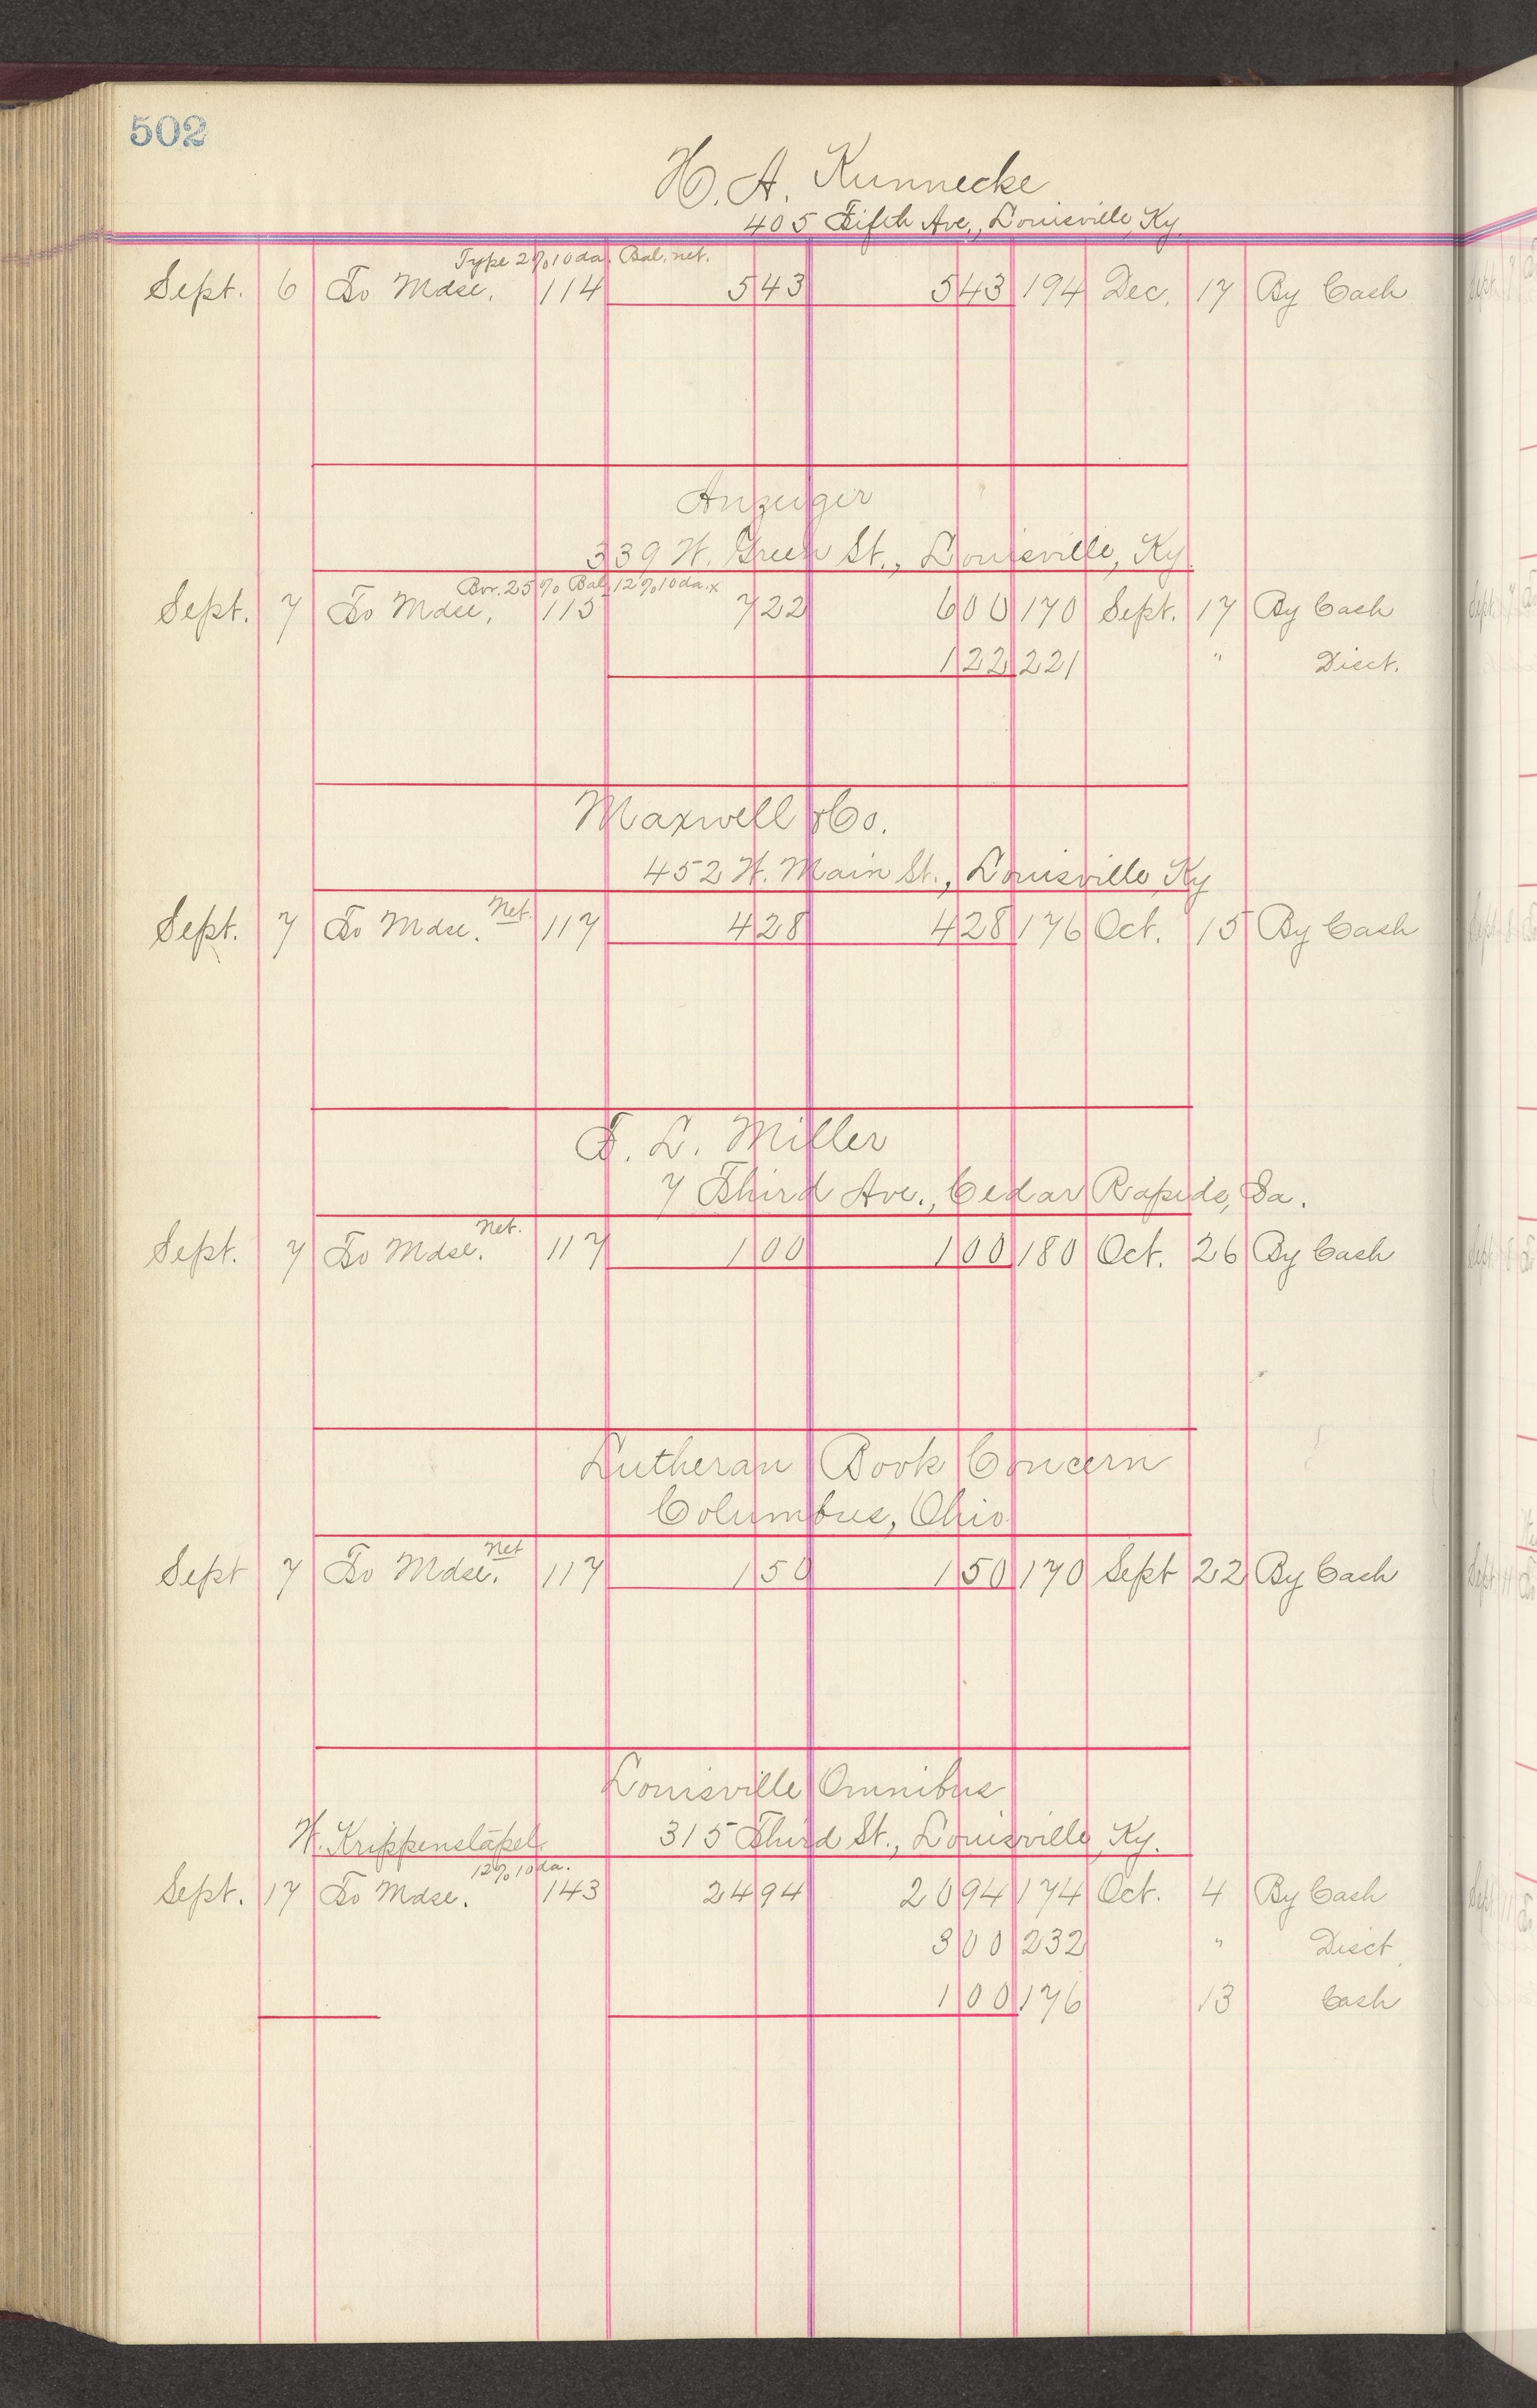 502
H. A. Kunnecke
405 Fifth Ave., Louisville, Ky.
Type 2% 10 da. Bal. net.
Sept. 6 To Mdse. 114 5 43 5 43 194 Dec. 17 By Cash
Anzeiger
339 W. Green St., Louisville, Ky.
Bor. 25% Bal. 12% 10 da. x
Sept. 7 To Mdse. 115 7 22 6 00 170 Sept. 17 By Cash
1 22 221 " Disct.
Maxwell & Co.
452 W. Main St., Louisville Ky
Net.
Sept. 7 To Mdse. 117 4 28 4 28 176 Oct. 15 By Cash
F. L. Miller
7 Third Ave., Cedar Rapids, Ia.
Net.
Sept. 7 To Mdse. 117 1 00 1 00 180 Oct. 26 By Cash
Lutheran Book Concern
Columbus, Ohio
Net
Sept 7 To Mdse. 117 1 50 1 50 170 Sept 22 By Cash
Louisville Omnibus
W. Krippenstapel 315 Third St., Louisville, Ky.
12% 10 da.
Sept. 17 To Mdse. 143 24 94 20 94 174 Oct. 4 By Cash
3 00 232 " Disct.
1 00 176 13 Cash